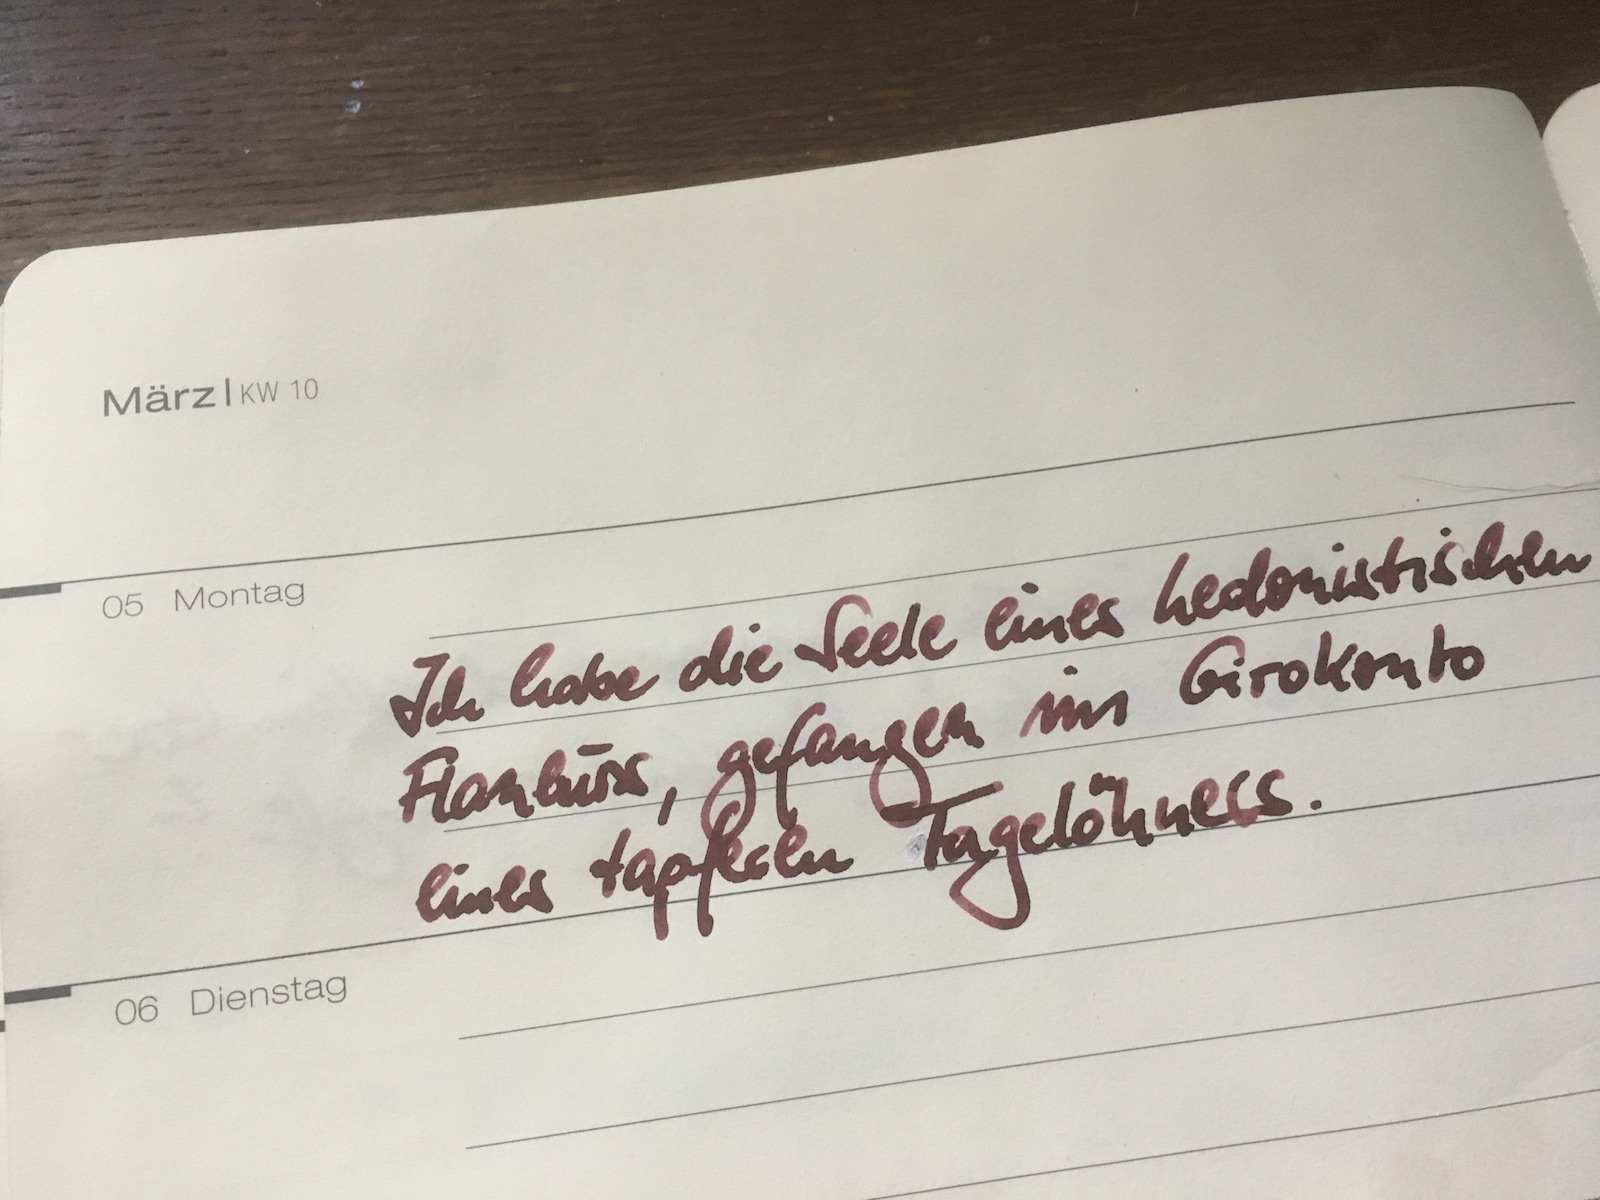 März | KW 10
05 Montag
Ich habe die Seele eines hedonistischen
Flaneurs, gefangen im Girokonto
eines tapferen Tagelöhners.
06 Dienstag